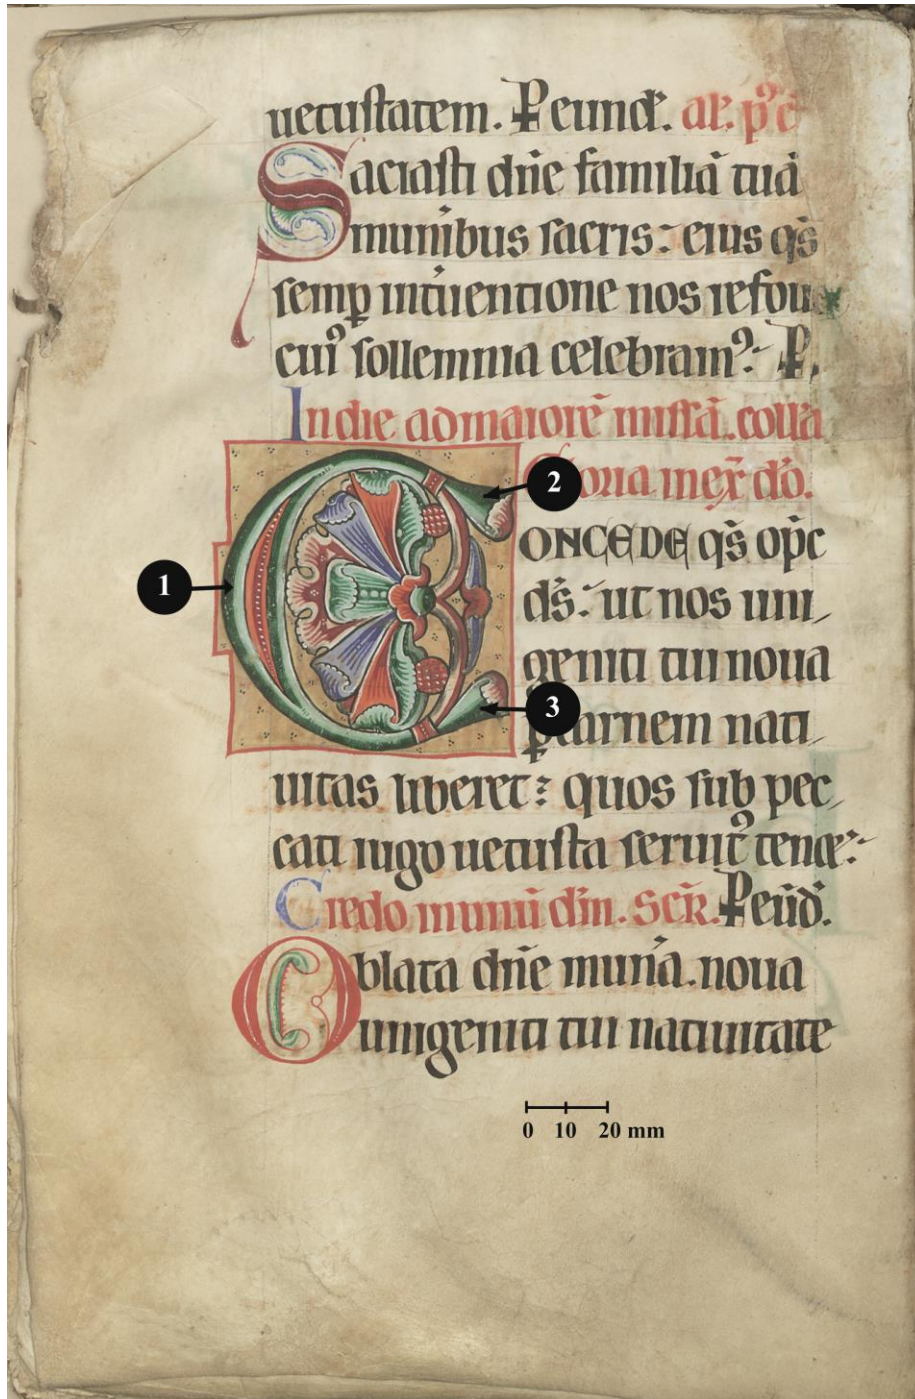 uetuſtatem. P eund̄.
Saciaſti dn̄e familiā tuā
munⁱbus ſacris: eius qs̄
ſemꝑ int̾uentione nos
cuiꝰ ſollemnia celebramꝰ: P.
In die ad maiorē miſſā.
2
oria in ex̄ dō.
CONCEDE qs̄ op̄c
1
ds̄: ut nos uni
geniti tui noua
3
ꝑ carnem nati
uitas liberet: quos ſub pec
cati iugo uetuſta ſeruit᷒
Credo in unū dm̄. Scr̄. P eūd̄.
Oblata dn̄e mun̾a. noua
unigeniti tui natiuitate
0 10 20 mm